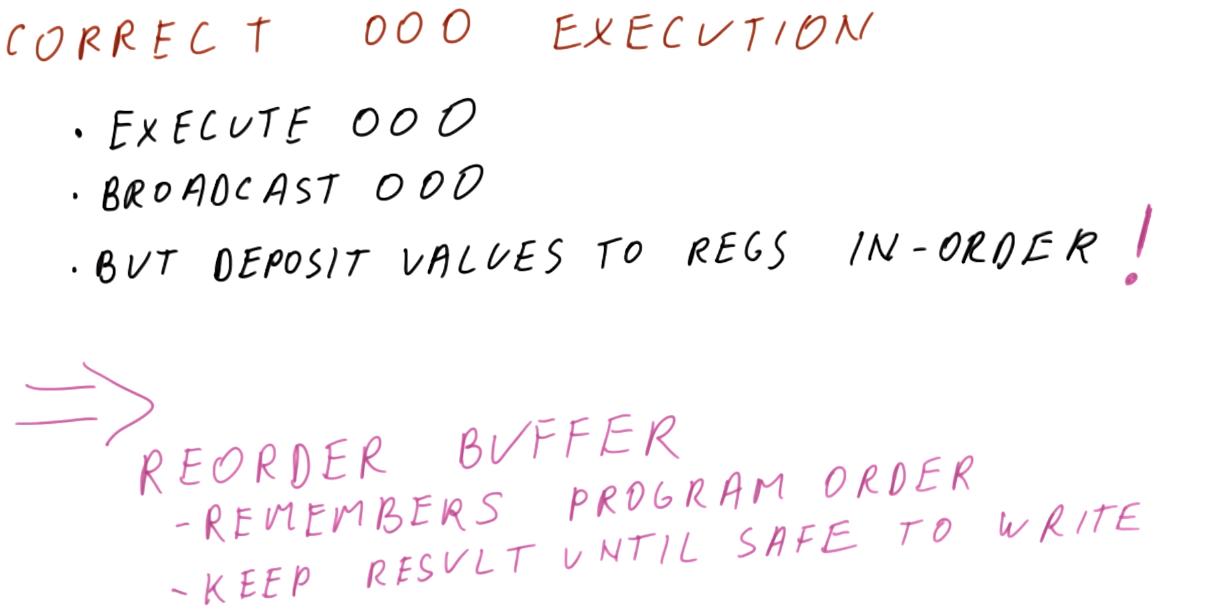 CORRECT OOO EXECUTION
• EXECUTE OOO
• BROADCAST OOO
• BUT DEPOSIT VALUES TO REGS IN-ORDER!
⇒
REORDER BUFFER
- REMEMBERS PROGRAM ORDER
- KEEP RESULT UNTIL SAFE TO WRITE